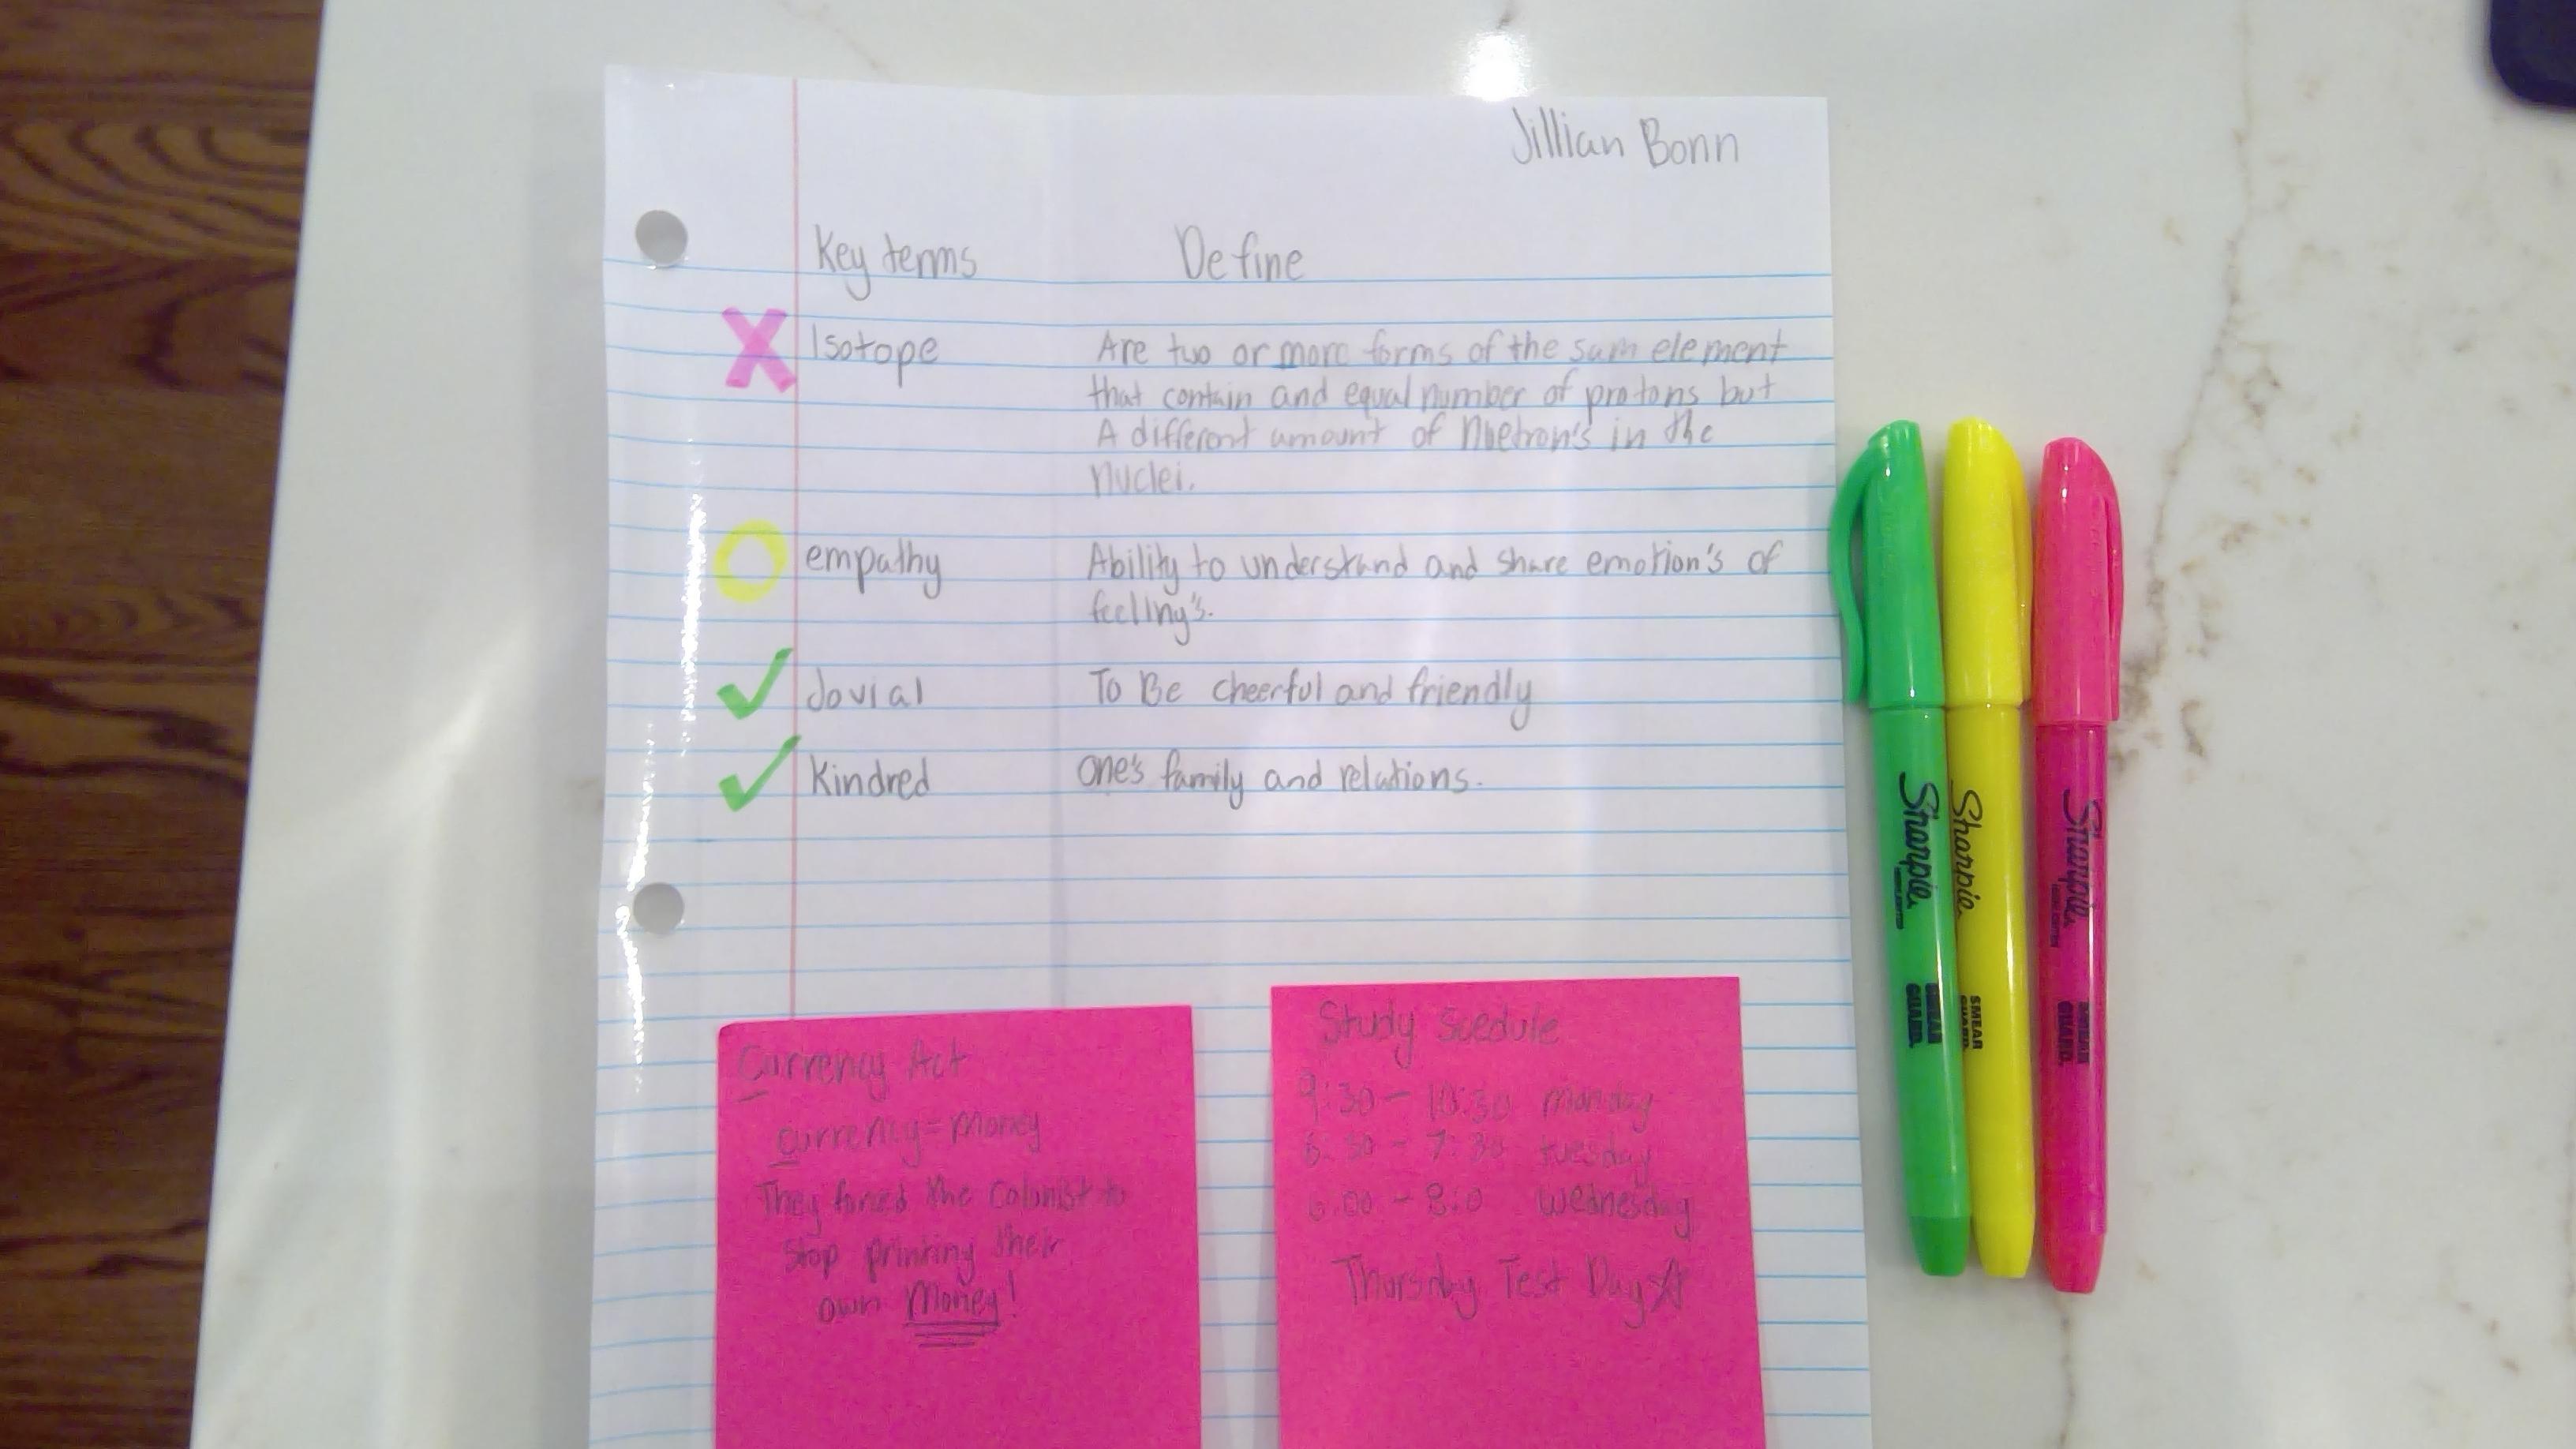 Jillian Bonn
Key terms Define
Isotope Are two or more forms of the sum element
that contain and equal number of protons but
A different amount of Nuetron's in the
nuclei.
empathy Ability to understand and share emotion's of
feeling's.
Jovial To Be cheerful and friendly
Kindred one's family and relations.
Currency Act
currency = money
They forced the colonist to
stop printing their
own Money!
Study Scedule
9:30 - 10:30 monday
6:30 - 7:30 tuesday
6:00 - 8:0 wednesday
Thursday Test Day
Sharpie
SMEAR
GUARD.
Sharpie
SMEAR
GUARD.
Sharpie
SMEAR
GUARD.